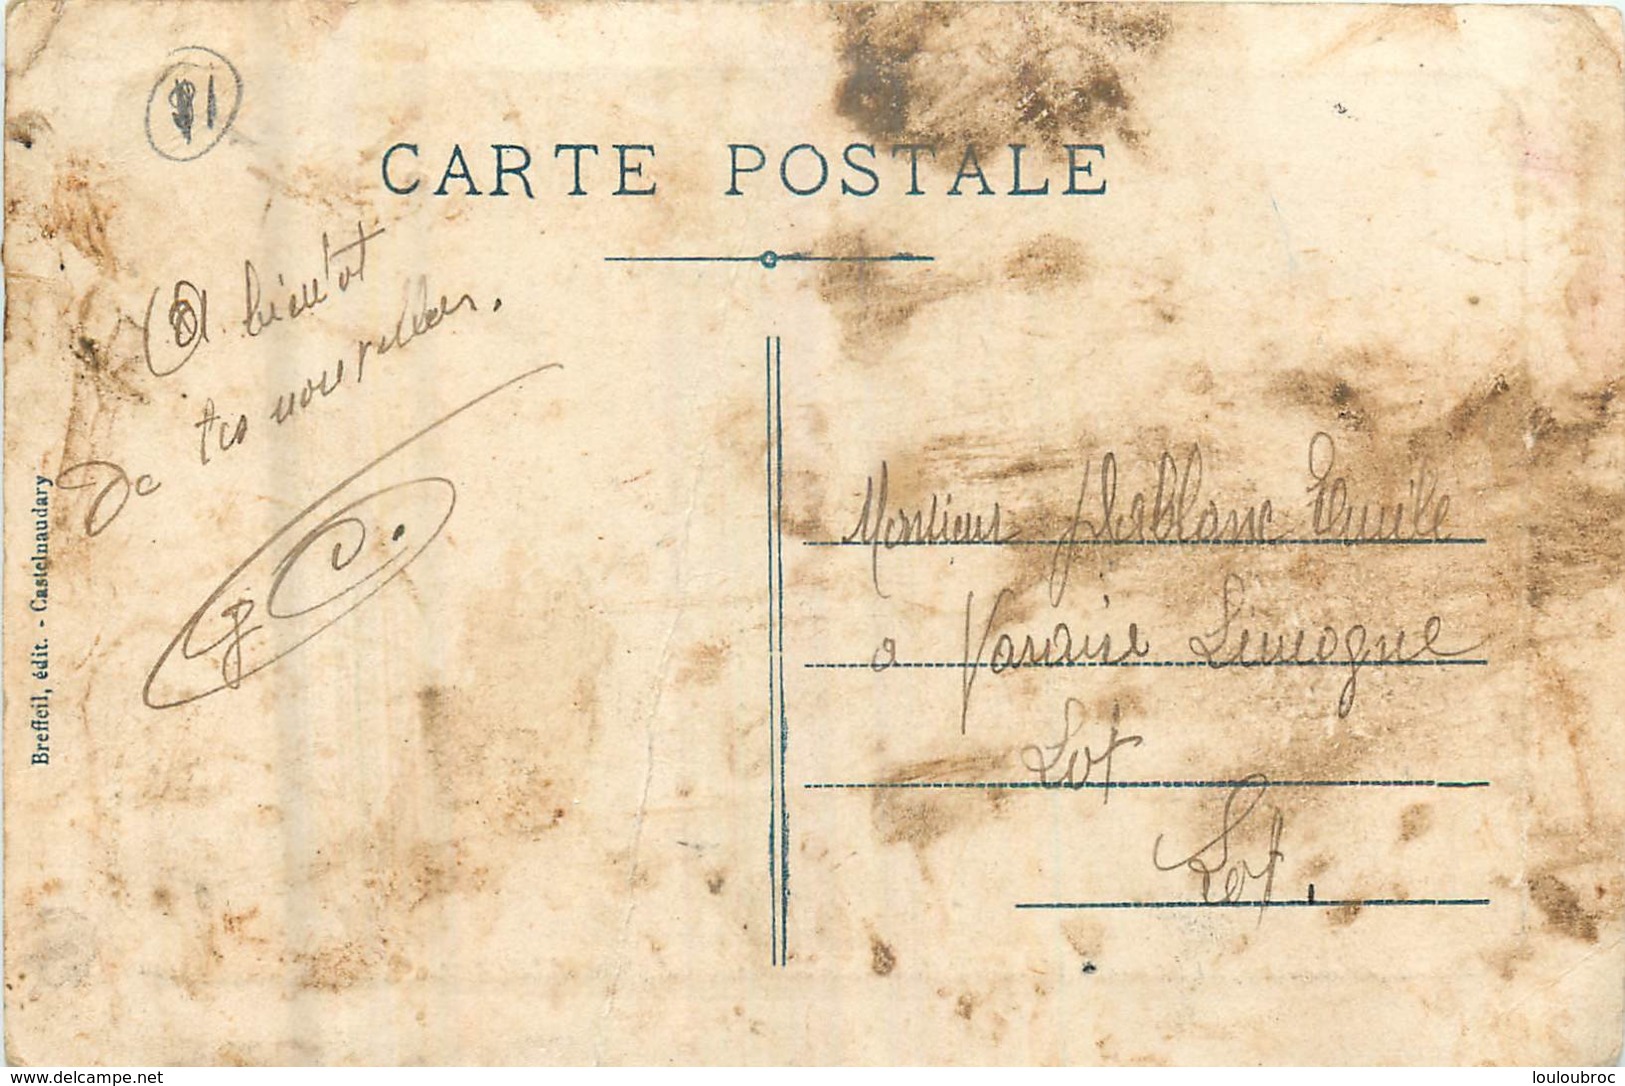 81
CARTE POSTALE
A bientot
De tes nouvelles.
J C.
Breffeil, édit. - Castelnaudary
Monsieur Emile
a Varaire Limogne
Lot
Lot.
www.delcampe.net
louloubroc